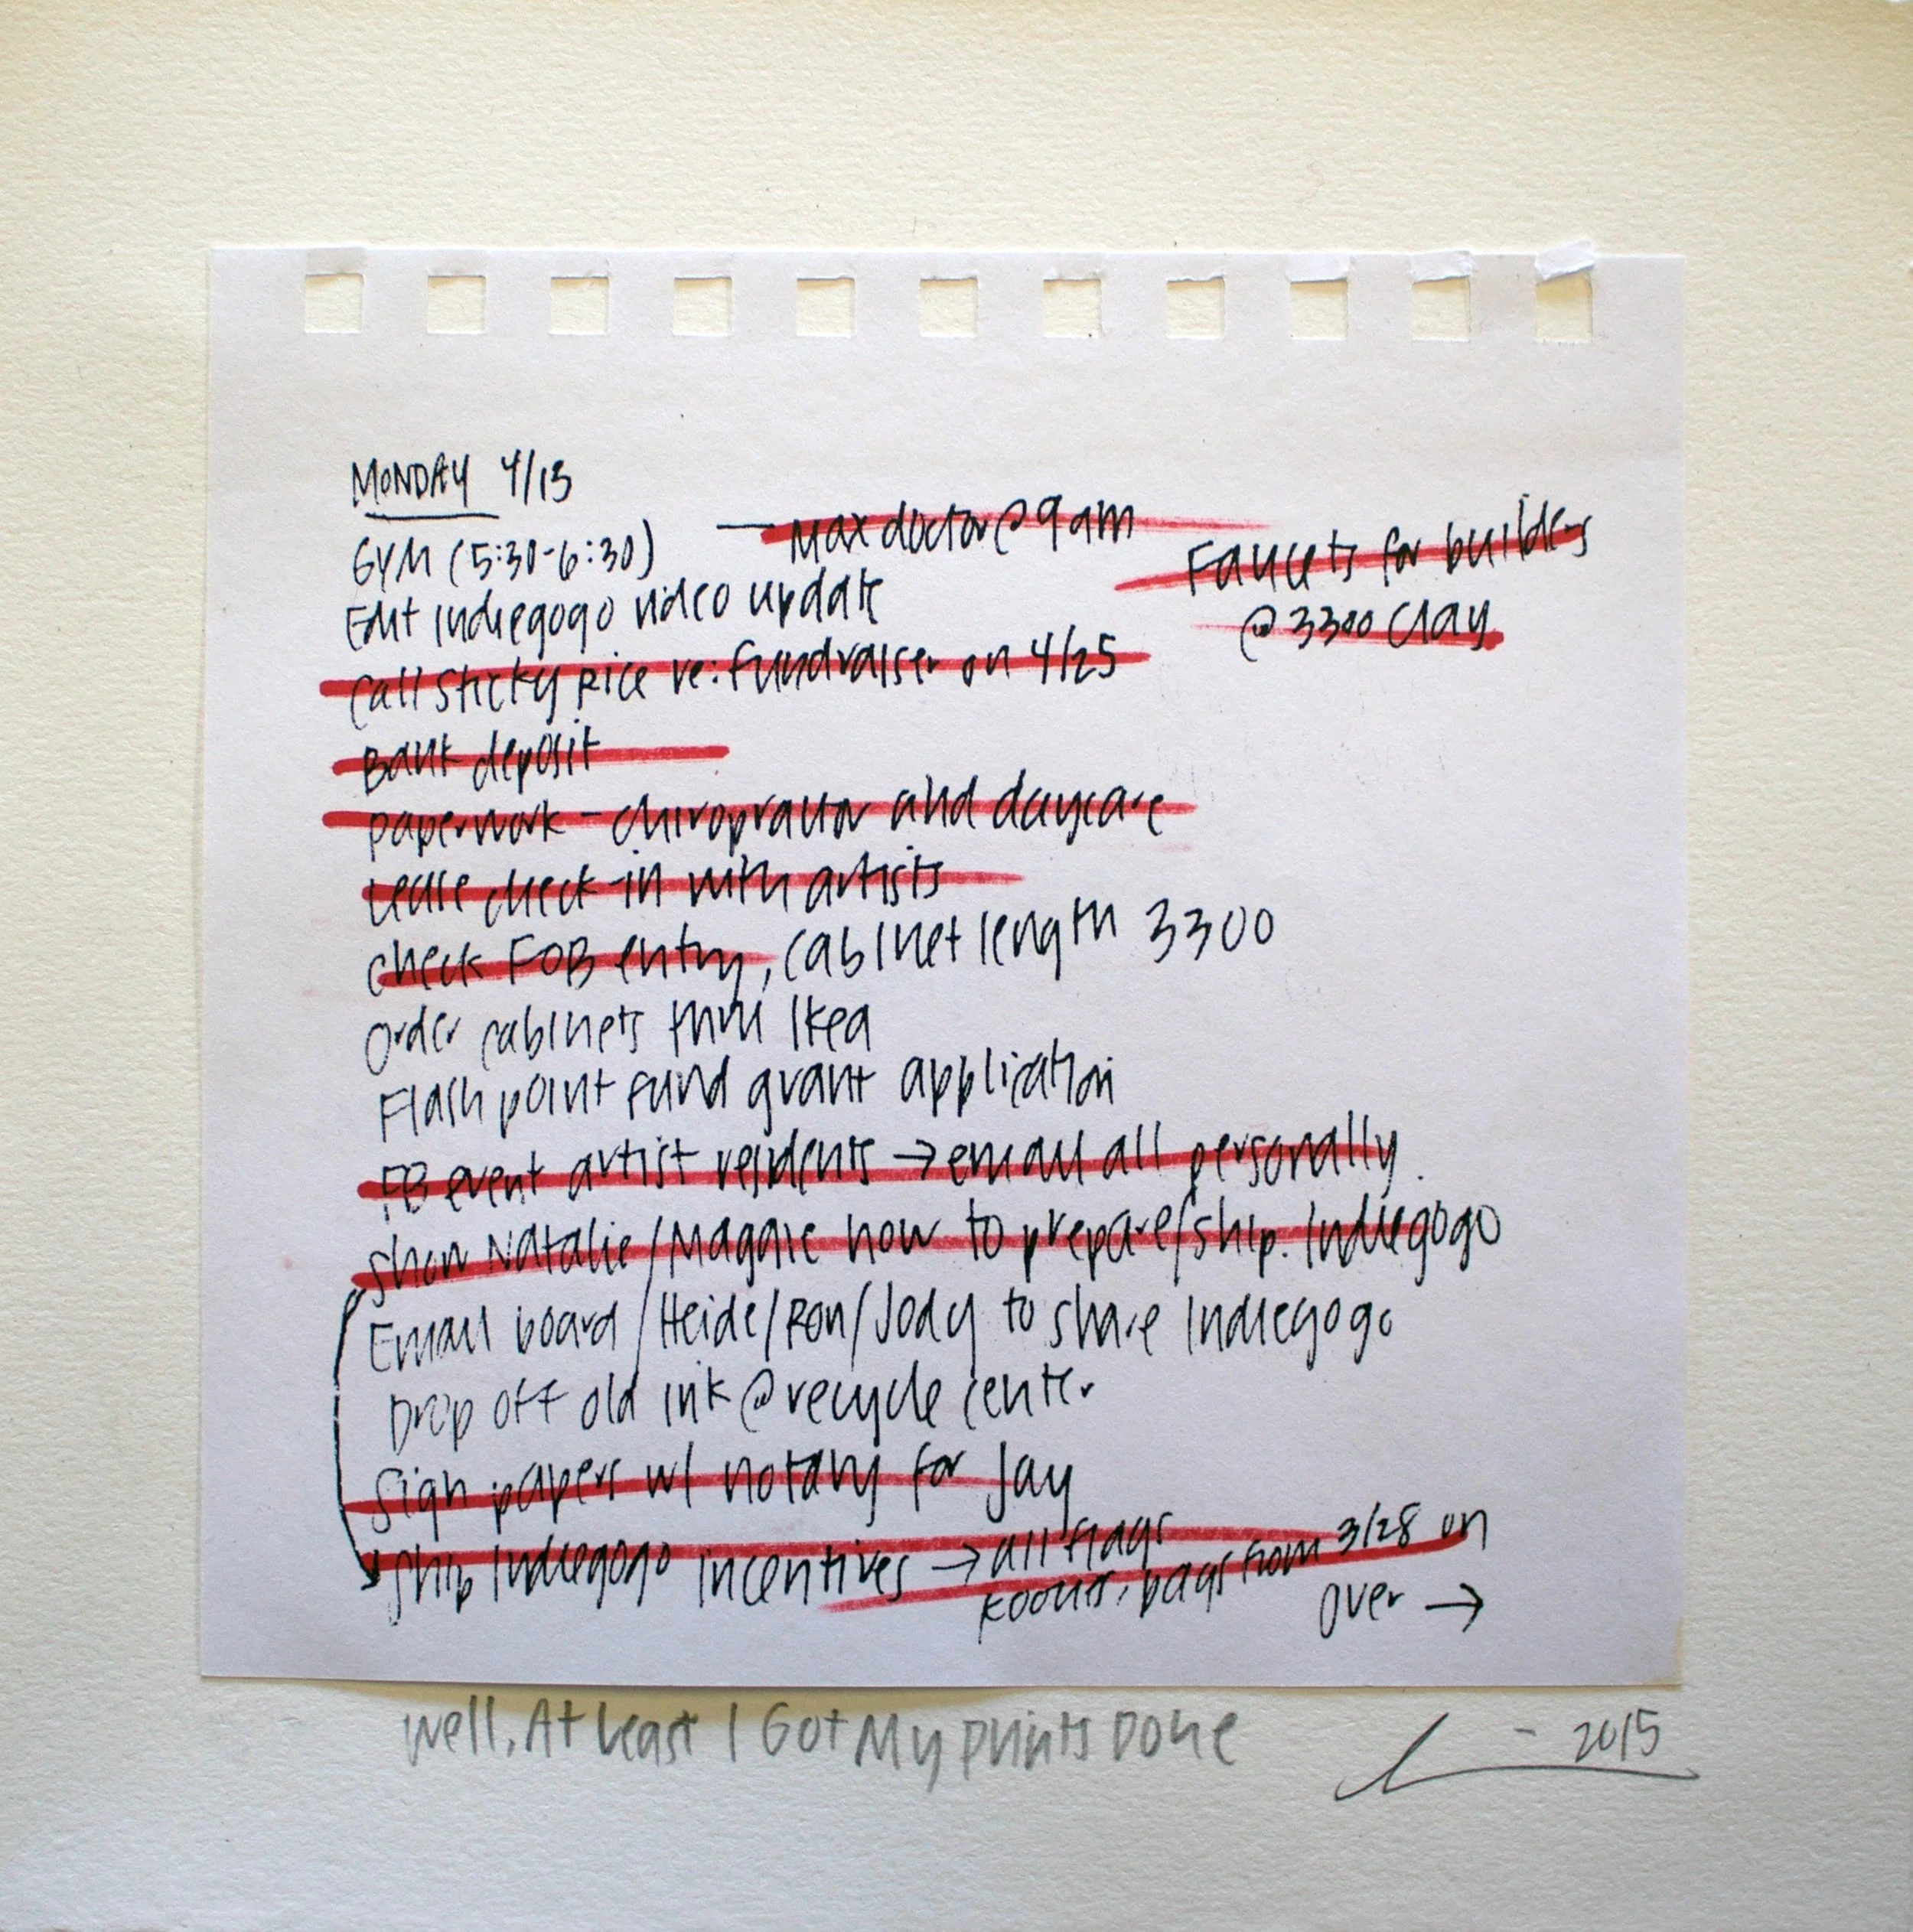 MONDAY 4/13
GYM (5:30-6:30) — Max doctor @ 9am
Faucets for builders
@ 3300 Clay
Edit Indiegogo video update
Call Sticky Rice re: fundraiser on 4/25
Bank deposit
paperwork - chiropractor and daycare
check-in with artists
check FOB entry, cabinet length 3300
Order cabinets thru Ikea
Flash point fund grant application
FB event artist residents → email all personally.
Show Natalie/Maggie how to prepare/ship. Indiegogo
Email board/Heide/Ron/Jody to share Indiegogo
Drop off old ink @ recycle center
Sign papers w/ notary for Jay
Ship Indiegogo incentives → all flags
bags from 3/28 on
over →
Well, At Least I Got My Prints Done
- 2015